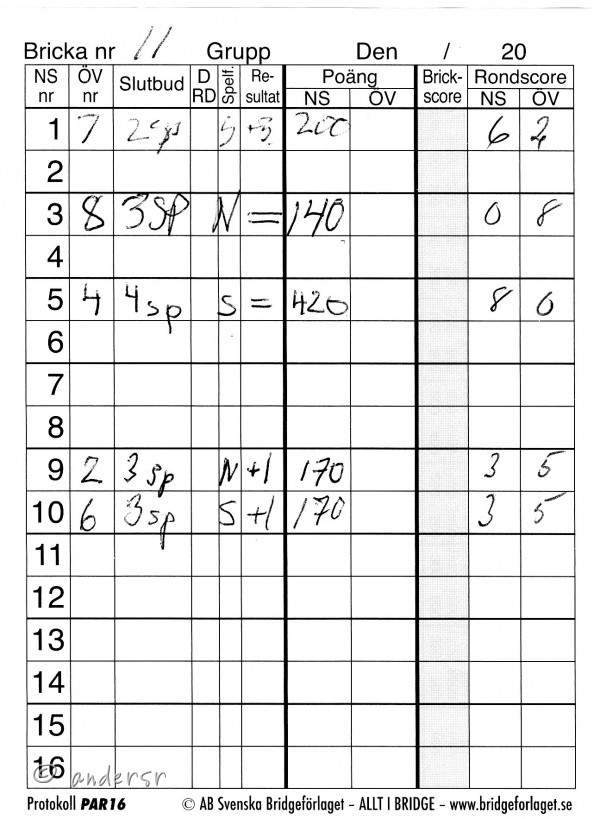 Bricka nr 11 Grupp Den / 20
NS nr ÖV nr Slutbud D RD Spelf. Re-sultat Poäng NS ÖV Brick-score Rondscore NS ÖV
1 7 2sp S +3 200 6 2
2
3 8 3SP N = 140 0 8
4
5 4 4sp S = 420 8 0
6
7
8
9 2 3sp N +1 170 3 5
10 6 3sp S +1 170 3 5
11
12
13
14
15
16
© andersr
Protokoll PAR16 © AB Svenska Bridgeförlaget – ALLT I BRIDGE – www.bridgeforlaget.se